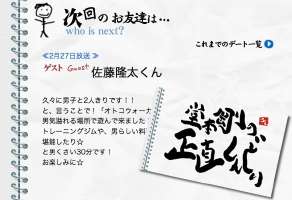 次回のお友達は…
who is next?
これまでのデート一覧
≪2月27日放送≫
ゲスト Guest 佐藤隆太くん
久々に男子と2人きりです!!
と、言うことで!「オトコウォーナ
男気溢れる場所で遊んで来ました
トレーニングジムや、男らしい料
堪能したり☆
と男くさい30分です!
お楽しみに☆
堂本剛の
正直しんどい